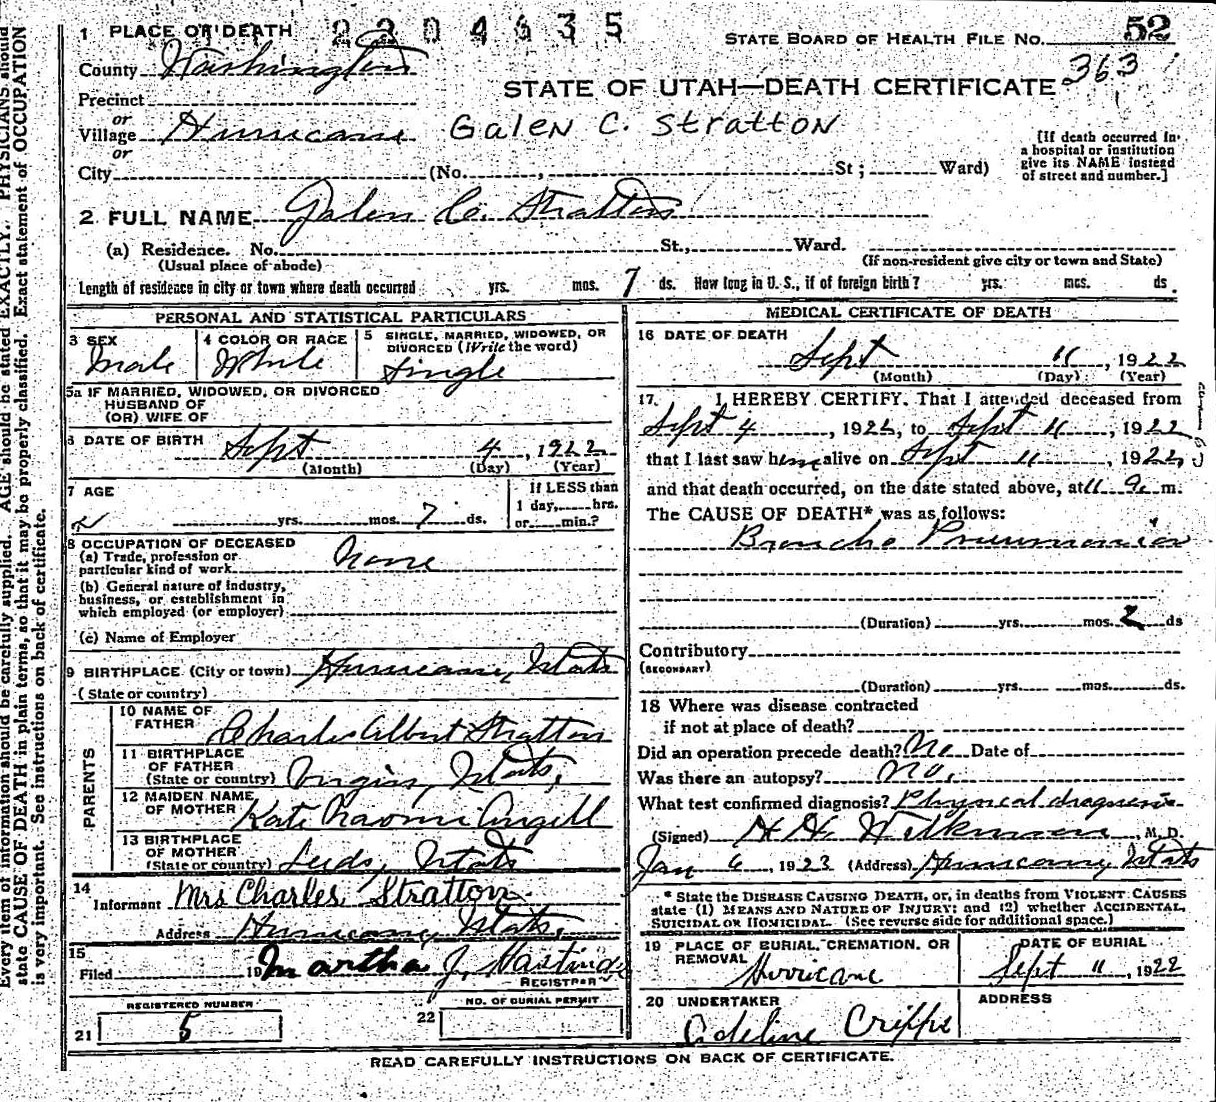 1 PLACE OF DEATH 2204435 STATE BOARD OF HEALTH FILE No. 52
County Washington 363
STATE OF UTAH—DEATH CERTIFICATE
Precinct
or
Village Hurricane Galen C. Stratton
[If death occurred in
a hospital or institution
give its NAME instead
of street and number.]
or
City (No. , St ; Ward)
2. FULL NAME Galen C. Stratton
(a) Residence. No. St., Ward.
(Usual place of abode) (If non-resident give city or town and State)
Length of residence in city or town where death occurred yrs. mos. 7 ds. How long in U. S., if of foreign birth? yrs. mos. ds.
PERSONAL AND STATISTICAL PARTICULARS
3 SEX
Male
4 COLOR OR RACE
White
5 SINGLE, MARRIED, WIDOWED, OR
DIVORCED (Write the word)
Single
5a IF MARRIED, WIDOWED, OR DIVORCED
HUSBAND OF
(OR) WIFE OF
6 DATE OF BIRTH Sept 4, 1922
(Month) (Day) (Year)
7 AGE
yrs. mos. 7 ds.
If LESS than
1 day, hrs.
or min.?
8 OCCUPATION OF DECEASED
(a) Trade, profession or
particular kind of work None
(b) General nature of industry,
business, or establishment in
which employed (or employer)
(c) Name of Employer
9 BIRTHPLACE (City or town) Hurricane, Utah
(State or country)
PARENTS
10 NAME OF
FATHER Charles Albert Stratton
11 BIRTHPLACE
OF FATHER
(State or country) Virgin, Utah,
12 MAIDEN NAME
OF MOTHER Kate Naomi Angell
13 BIRTHPLACE
OF MOTHER
(State or country) Leeds, Utah
14
Informant Mrs Charles Stratton
Address Hurricane, Utah,
15
Filed 19 Martha J. Hastings
REGISTRAR
REGISTERED NUMBER
21 5
NO. OF BURIAL PERMIT
22
MEDICAL CERTIFICATE OF DEATH
16 DATE OF DEATH
Sept 11, 1922
(Month) (Day) (Year)
17. I HEREBY CERTIFY, That I attended deceased from
Sept 4, 1922, to Sept 11, 1922
that I last saw him alive on Sept 11, 1922,
and that death occurred, on the date stated above, at 11 9 a m.
The CAUSE OF DEATH* was as follows:
Broncho Pneumonia
(Duration) yrs. mos. 2 ds
Contributory
(SECONDARY)
(Duration) yrs. mos. ds.
18 Where was disease contracted
if not at place of death?
Did an operation precede death? No Date of
Was there an autopsy? No.
What test confirmed diagnosis? Physical diagnosis
(Signed) H. H. Wilkinson, M. D.
Jan 6, 1923 (Address) Hurricane, Utah
* State the DISEASE CAUSING DEATH, or, in deaths from VIOLENT CAUSES
state (1) MEANS AND NATURE OF INJURY; and (2) whether ACCIDENTAL,
SUICIDAL OR HOMICIDAL. (See reverse side for additional space.)
19 PLACE OF BURIAL, CREMATION, OR
REMOVAL
Hurricane
DATE OF BURIAL
Sept 11, 1922
20 UNDERTAKER
Adeline Cripps
ADDRESS
READ CAREFULLY INSTRUCTIONS ON BACK OF CERTIFICATE.
Every item of information should be carefully supplied. AGE should be stated EXACTLY. PHYSICIANS should
state CAUSE OF DEATH in plain terms, so that it may be properly classified. Exact statement of OCCUPATION
is very important. See instructions on back of certificate.